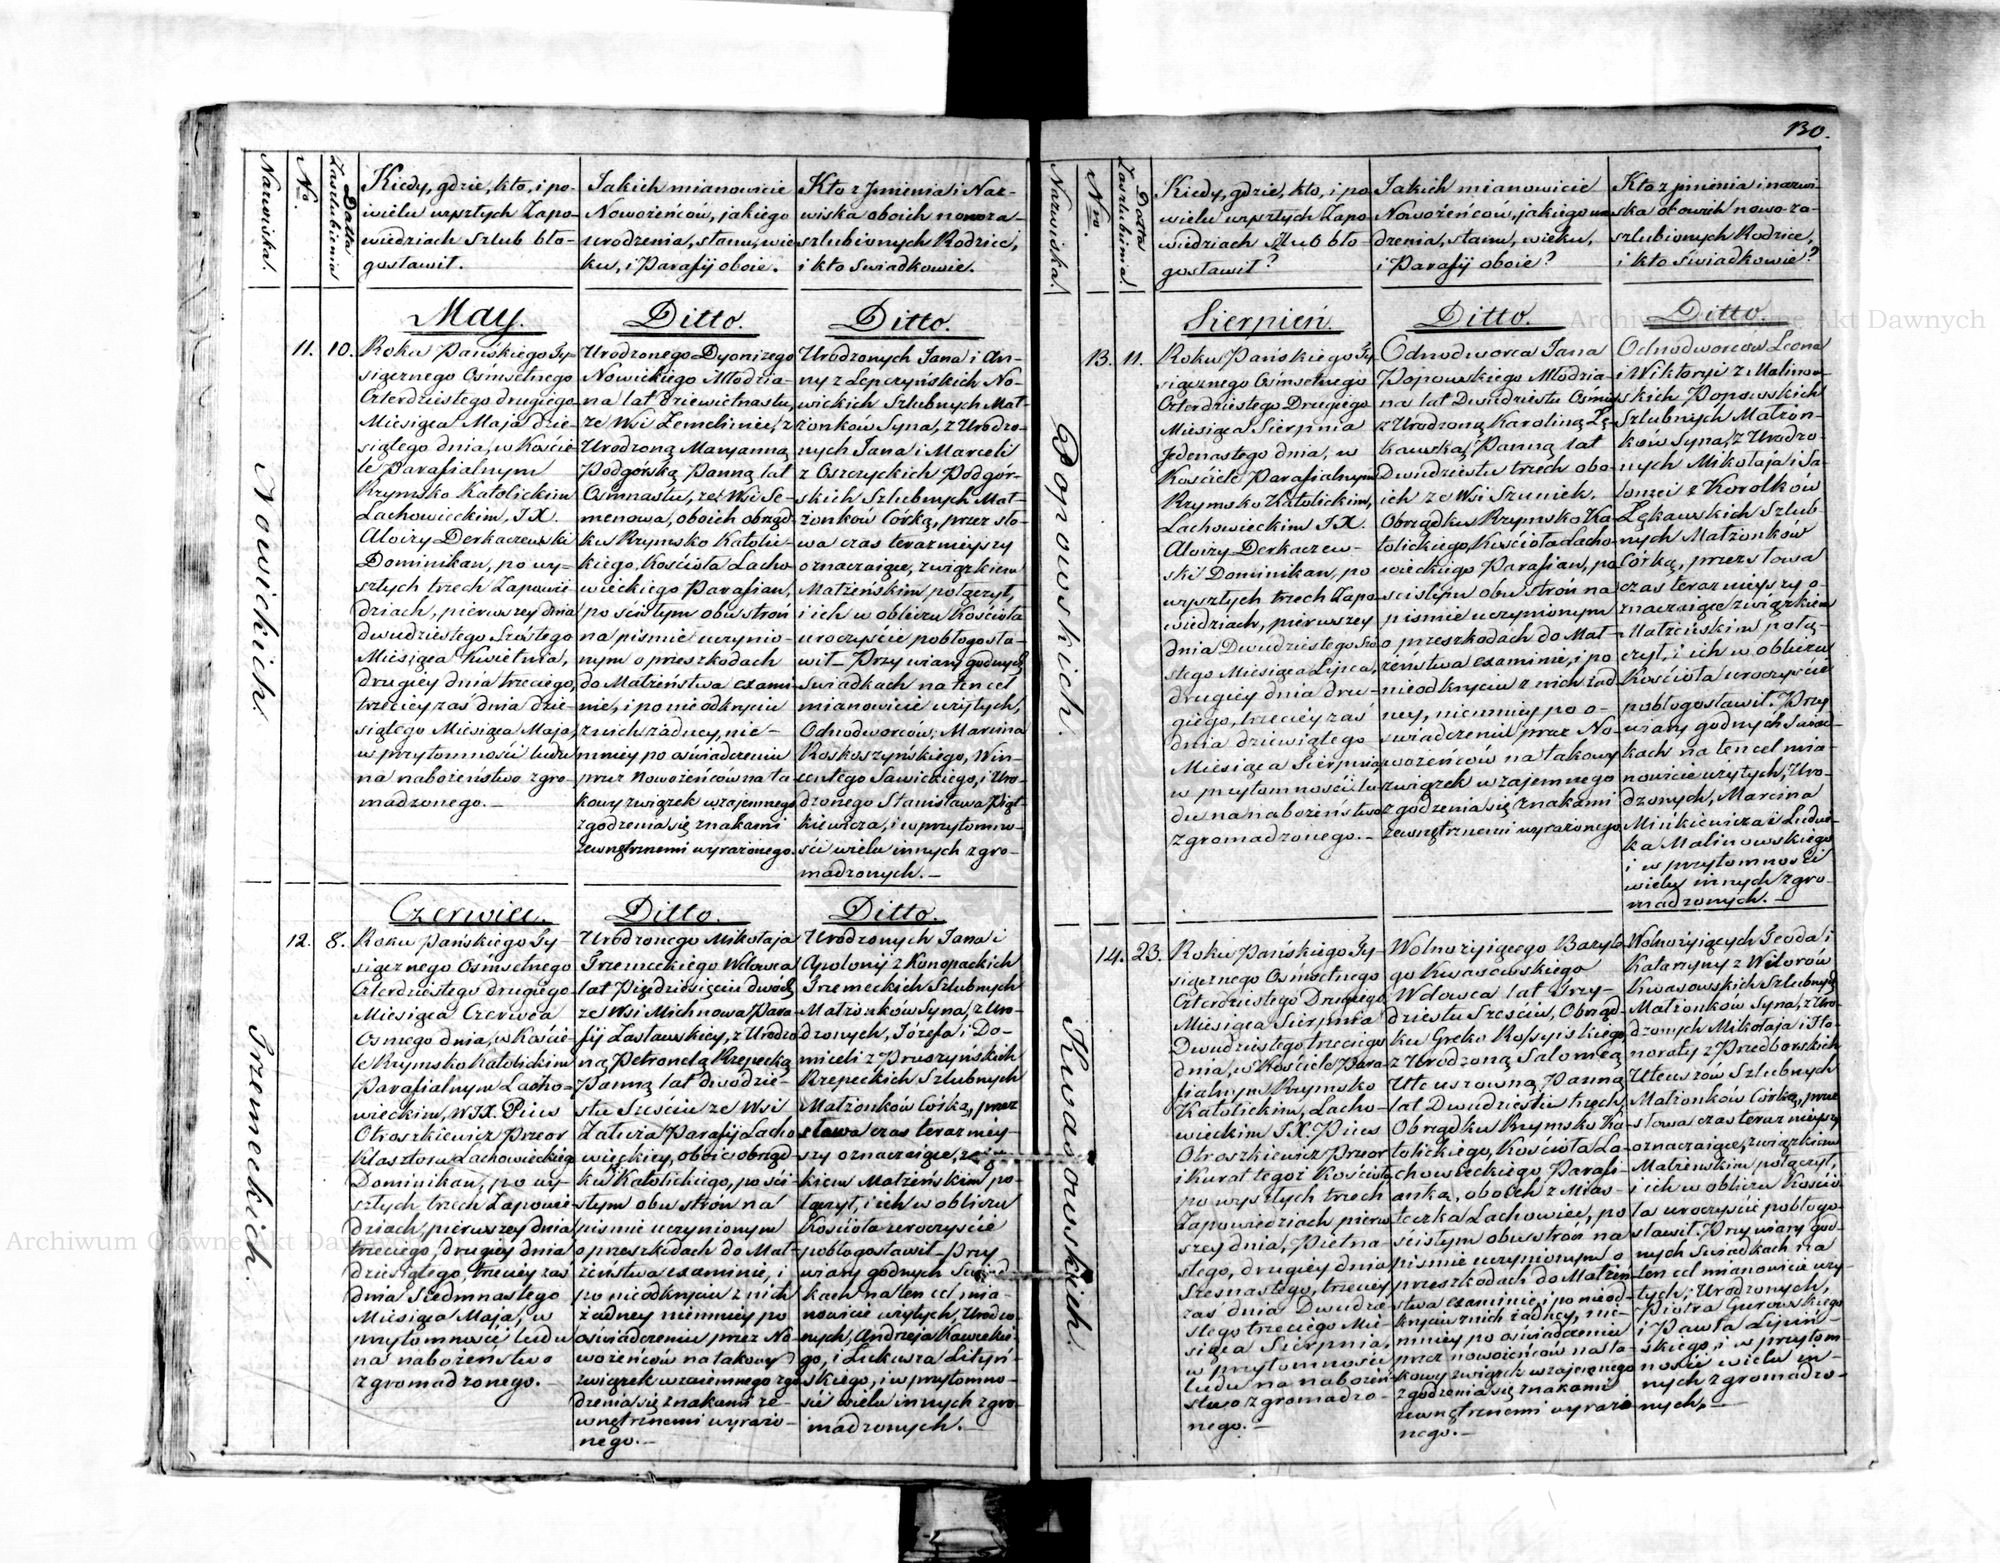 130.
Nazwiska.
No
Datta Zaslubienia
Kiedy, gdzie, kto, i po-
wielu wyszłych Zapo-
wiedziach Szlub bło-
gosławił.
Jakich mianowicie
Nowożeńców, jakiego
urodzenia, stanu, wie-
ku, i Parafij oboie.
Kto z Jmienia i Naz-
wiska oboich nowoza-
szlubionych Rodzice,
i kto Swiadkowie.
May.
Ditto.
Ditto.
Nowickich.
11.
10.
Roku Pańskiego Ty-
siącznego Osmsetnego
Czterdziestego drugiego
Miesiąca Maja dzie-
siątego dnia, w Koście-
le Parafialnym
Rzymsko Katolickim
Lachowieckim, JX.
Aloizy Derkaczewski
Dominikan, po wy-
szłych trzech Zapowie-
dziach, pierwszey dnia
dwudziestego Szóstego
Miesiąca Kwietnia,
drugiey dnia trzeciego,
trzeciey zaś dnia dzie-
siątego Miesiąca Maja,
w przytomności ludu
na nabożeństwo zgro-
madzonego.—
Urodzonego Dyonizego
Nowickiego Młodzia-
na lat dziewietnastu,
ze Wsi Zemeliniec, z
Urodzoną Maryanną
Podgorską Panną lat
Osmnastu, ze Wsi Se-
menowa, oboich obrząd-
ku Rzymsko Katolic-
kiego, Kościoła Lacho-
wieckiego Parafian,
po scisłym obu stron
na pismie uczynio-
nym o przeszkodach
do Małżeństwa exami-
nie, i po nie odkryciu
z nich żadney, nie-
mniey po oświadczeniu
przez Nowożeńców na ta-
kowy związek wzajemnego
zgodzenia się znakami
zewnętrznemi wyrażonego.
Urodzonych Jana i An-
ny z Lepczyńskich No-
wickich Szlubnych Mał-
żonkow Syna, z Urodzo-
nych Jana i Marceli
z Oszczyckich Podgór-
skich Szlubnych Mał-
żonków Córką, przez sło-
wa czas terazniejszy
oznaczaiące, związkiem
Małżeńskim połączył,
i ich w obliczu Kościoła
uroczyście pobłogosła-
wił— Przy wiary godnych
Swiadkach na ten cel
mianowicie użytych,
Odnodworców; Marcina
Roskoszyńskiego, Win-
centego Sawickiego, i Uro-
dzonego Stanisława Piąt-
kiewicza, i w przytomno-
ści wielu innych zgro-
madzonych.—
Czerwiec.
Ditto.
Ditto.
Trzemeckich.
12.
8.
Roku Pańskiego Ty-
siącznego Osmsetnego
Czterdziestego drugiego
Miesiąca Czerwca
Osmego dnia, w Koście-
le Rzymsko Katolickim
Parafialnym Lacho-
wieckim, WJX. Pius
Otroszkiewicz Przeor
Klasztoru Lachowieckiego
Dominikan, po wy-
szłych trzech Zapowie-
dziach, pierwszey dnia
trzeciego, drugiey dnia
dziesiątego, trzeciey zaś
dnia Siedmnastego
Miesiąca Maja, w
przytomności ludu
na nabożeństwo
zgromadzonego.—
Urodzonego Mikołaja
Trzemeckiego Wdowca
lat Pięćdziesięciu dwóch
ze Wsi Michnowa Para-
fij Zasławskiey, z Urodzo-
ną Petronelą Rzepecką
Panną lat dwódzie-
stu Sześciu ze Wsi
Zalicia Parafij Lacho-
wieckiey, oboie obrząd-
ku Katolickiego, po ści-
słym obu strón na
pismie uczynionym
o przeszkodach do Mał-
żeństwa examinie, i
po nieodkryciu z nich
żadney niemniey po
oświadczeniu przez No-
wożeńców na takowy
związek wzaiemnego zgo-
dzenia się znakami ze-
wnętrznemi wyrażo-
nego.—
Urodzonych Jana i
Apolonij z Konopackich
Trzemeckich Szlubnych
Małżonków Syna, z Uro-
dzonych, Józefa i Do-
miceli z Pruszyńskich
Rzepeckich Szlubnych
Małżonków Córką, przez
słowa czas terazniey-
szy oznaczaiące, związ-
kiem Małżeńskim po-
łączył, i ich w obliczu
Kościoła uroczyście
pobłogosławił— przy
wiary godnych Swiad-
kach na ten cel mia-
nowicie użytych, Urodzo-
nych, Andrzeja Kaweckie-
go, i Łukasza Lityń-
skiego, i w przytomno-
ści wielu innych zgro-
madzonych.—
Nazwiska.
Nro.
Datta Zaslubienia.
Kiedy, gdzie, kto, i po
wielu wyszłych Zapo
wiedziach Szlub bło-
gosławił?
Jakich mianowicie
Nowożeńców, jakiego uro-
dzenia, stanu, wieku,
i Parafij oboie?
Kto z jmienia i nazwi-
ska obowich nowo za-
szlubionych Rodzice,
i kto świadkowie?
Sierpień.
Ditto.
Ditto.
Popowskich.
13.
11.
Roku Pańskiego Ty-
siącznego Osmsetnego
Czterdziestego Drugiego
Miesiąca Sierpnia
Jedenastego dnia, w
Kościele Parafialnym
Rzymsko Katolickim,
Lachowieckim JX.
Aloizy Derkaczew-
ski Dominikan, po
wyszłych trzech Zapo-
wiedziach, pierwszey
dnia Dwudziestego Szó-
stego Miesiąca Lipca,
drugiey dnia dru-
giego, trzeciey zaś
dnia dziewiątego
Miesiąca Sierpnia,
w przytomności lu-
du na nabożeństwo
zgromadzonego.—
Odnodworca Jana
Popowskiego Młodzia-
na lat Dwudziestu Ośmiu,
z Urodzoną Karoliną Łę-
kawską, Panną lat
Dwudziestu trzech obo-
ich ze Wsi Szuniek,
Obrządku Rzymsko Ka-
tolickiego, Kościoła Lacho-
wieckiego Parafian, po
scisłym obu strón na
pismie uczynionym
o przeszkodach do Mał-
żeństwa examinie, i po
nieodkryciu z nich żad-
ney, niemniey po o-
swiadczeniu przez No-
wożeńców na takowy
związek wzajemnego
zgodzenia się znakami
zewnętrznemi wyrażonego
Odnodworców Leona
i Wiktoryi z Malinow-
skich Popowskich
Szlubnych Małżon-
ków Syna, z Urodzo-
nych Mikołaja i Sa-
lomei z Korolkow
Łękawskich Szlub-
nych Małżonków
Córką, przez słowa
czas terazniejszy o-
znaczaiące związkiem
Małżeńskim połą-
czył, i ich w obliczu
Kościoła uroczyście
pobłogosławił. Przy
wiary godnych Swiad-
kach na ten cel mia-
nowicie użytych, Uro-
dzonych, Marcina
Mińkiewicza i Ludwi-
ka Malinowskiego
i w przytomności
wielu innych zgro-
madzonych.—
Kwasowskich.
14.
23.
Roku Pańskiego Ty-
siącznego Osmsetnego
Czterdziestego Drugiego
Miesiąca Sierpnia
Dwudziestego trzeciego
dnia, w Kościele Para-
fialnym Rzymsko
Katolickim, Lacho-
wieckim JX. Pius
Otroszkiewicz Przeor
i Kurat tegoż Kościoła
po wyszłych trzech
Zapowiedziach pierw-
szey dnia, Piętna-
stego, drugiey dnia
Szesnastego, trzeciey
zaś dnia Dwudzie-
stego trzeciego Mie-
siąca Sierpnia,
w przytomności
ludu na nabożeń-
stwo zgromadzo-
nego.—
Wolnożyjącego Bazyle-
go Kwasowskiego
Wdowca lat Trzy-
dziestu Sześciu, Obrząd-
ku Greko Rossyiskiego,
z Urodzoną Salomeą
Uleuszowną, Panną
lat Dwudziestu trzech
Obrządku Rzymsko Ka-
tolickiego, Kościoła La-
chowieckiego Parafi-
anką, oboich z Mias-
teczka Lachowiec, po
scisłym obu strón na
pismie uczynionym o
przeszkodach do Małżeń-
stwa examinie, i po nieod-
kryciu z nich żadney, nie-
mniey po oświadczeniu
przez nowożeńców na ta-
kowy związek wzajemnego
zgodzenia się znakami
zewnętrznemi wyrażo-
nego.—
Wolnożyjących Teoda i
Katarzyny z Witorów
Kwasowskich Szlubnych
Małżonków Syna, z Uro-
dzonych Mikołaja i Ho-
noraty z Przedborskich
Uleuszów Szlubnych
Małżonków Córką, przez
słowa czas terazniejszy
oznaczaiące, związkiem
Małżeńskim połączył,
i ich w obliczu Kościo-
ła uroczyście pobłogo-
sławił. Przy wiary god-
nych Swiadkach na
ten cel mianowicie uży-
tych, Urodzonych,
Piotra Gurowskiego
i Pawła Lijuń-
skiego, i w przytom-
ności wielu in-
nych zgromadzo-
nych.—
Archiwum Główne Akt Dawnych
Archiwum Główne Akt Dawnych